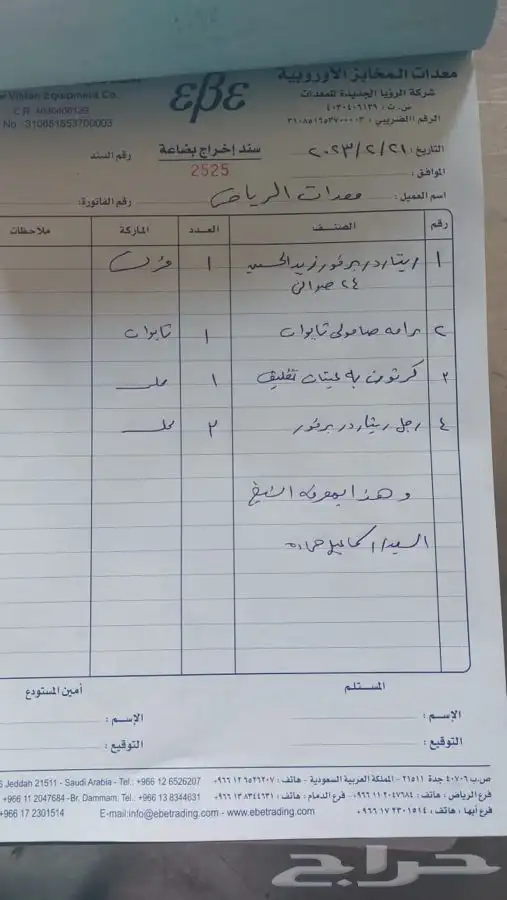 معدات المخابز الأوروبية
شركة الرؤيا الجديدة للمعدات
Vision Equipment Co.
س . ت : ٤٠٣٠٤٠٦١٢٩
C.R. 4030406129
الرقم الضريبي : ٣١٠٨٥١٦٥٣٧٠٠٠٠٣
No : 310851653700003
εβε
التاريخ : ٢٠٢٣/٢/٢١
سند إخراج بضاعة
رقم السند
الموافق :
2525
اسم العميل : معدات الرياض
رقم الفاتورة :
رقم الصنف العدد الماركة ملاحظات
١ ريتاردر برفور زيد الحسين ١
٢٤ صواني
٢ برامه صامولي تايوان ١ تايوان
٣ كرتون به عينات تغليف ١ محلى
٤ رجل ريتاردر برفور ٣ محلى
وهذا بمعرفة الشيخ
السيد/ اسماعيل حماده
المستلم
أمين المستودع
الإسم :
الإسم :
التوقيع :
التوقيع :
ص.ب ٤٠٧٠٦ جدة ٢١٥١١ - المملكة العربية السعودية - هاتف : ٩٦٦١٢٦٥٢٦٢٠٧+
Jeddah 21511 - Saudi Arabia - Tel.: +966 12 6526207
فرع الرياض : هاتف : ٩٦٦١١٢٠٤٧٦٨٤+ - فرع الدمام : هاتف : ٩٦٦١٣٨٣٤٤٦٣١+
+966 11 2047684 -Br. Dammam, Tel.: +966 13 8344631
فرع أبها : هاتف : ٩٦٦١٧٢٣٠١٥١٤+
+966 17 2301514 E-mail:info@ebetrading.com - www.ebetrading.com
حراج